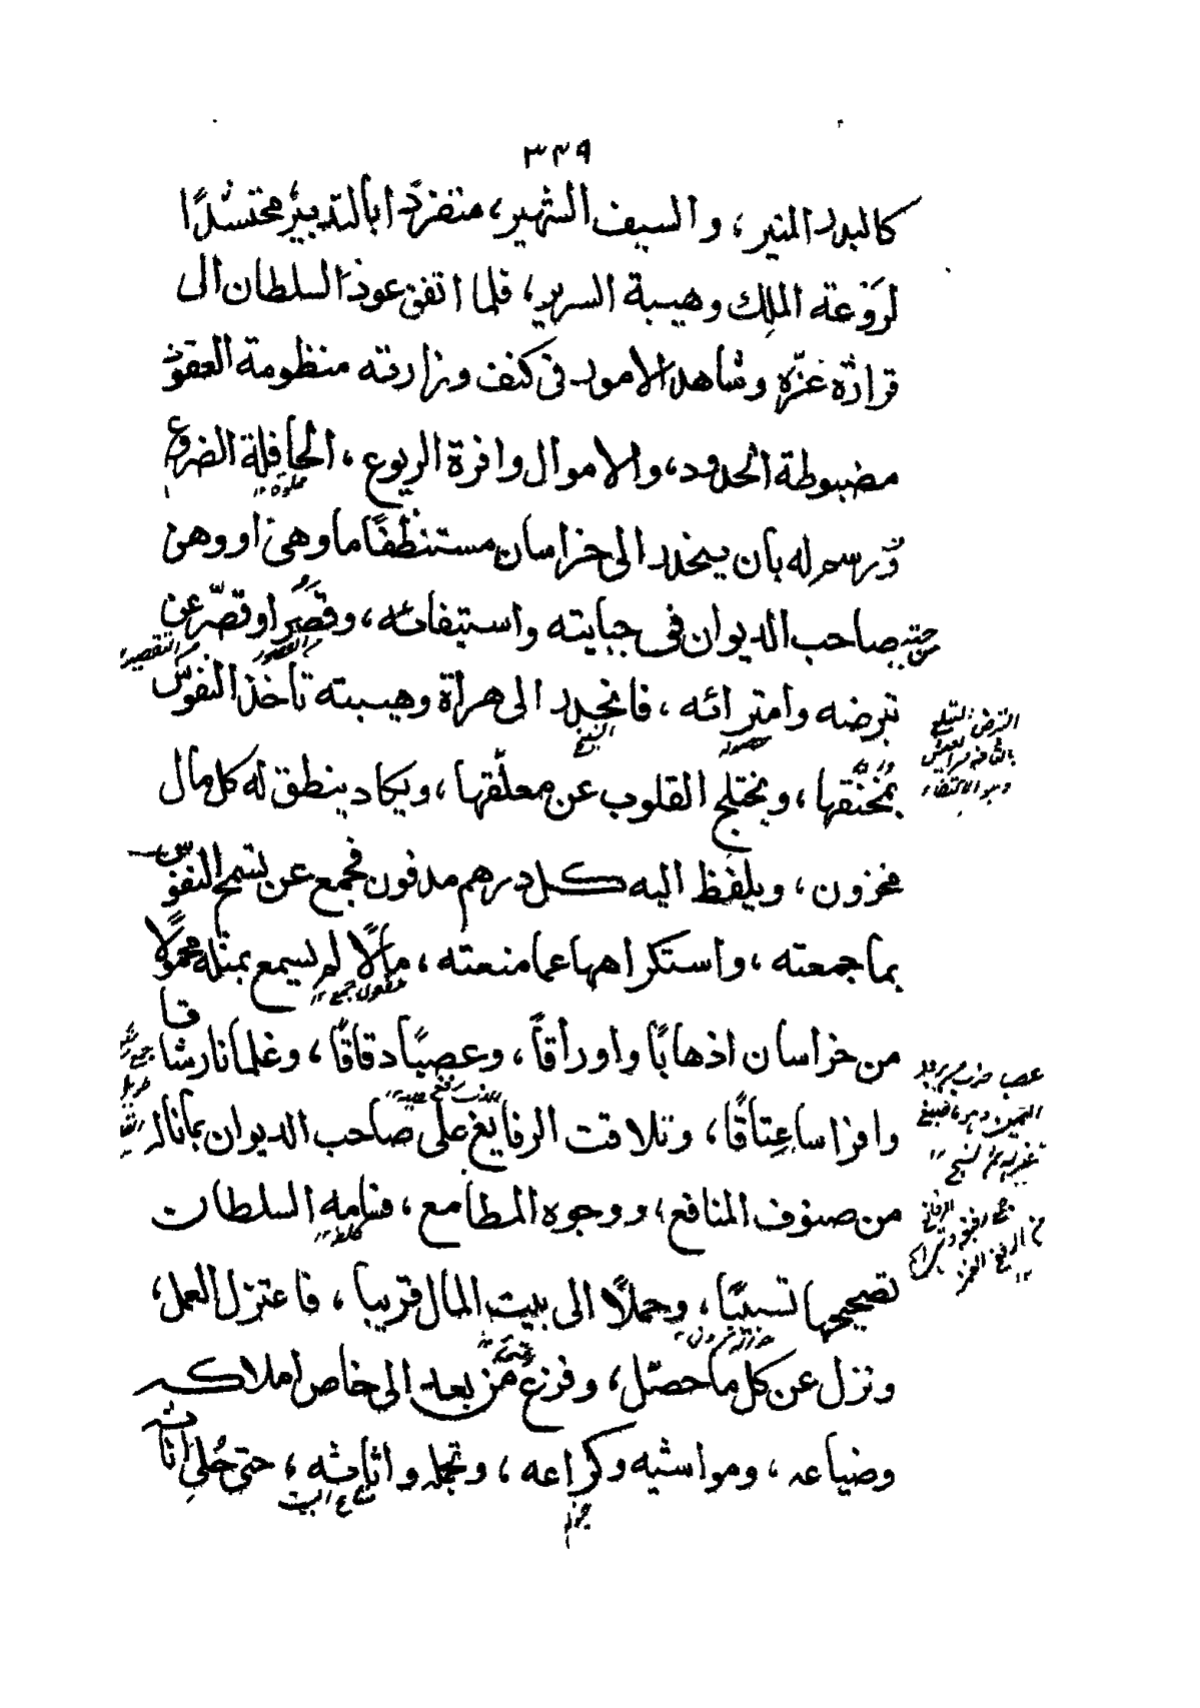 ٣٤٩
كالبدر المنير، والسيف الشهير، منفردًا بالتدبير محتشدًا
لروعة الملك وهيبة السرير، فلما اتفق عود السلطان الى
قرارة غزنه وشاهد الامور في كنف وزارته منظومة العقود
مضبوطة الحدود، والاموال وافرة الريوع، الحافلة الضروع
مملوة
رسم له بان ينحدر الى خراسان مستنظفًا ما وهى او وهن
صاحب الديوان في جبايته واستيفائه، وقصر او قصّر عن
من القصور
من التقصير
تبرضه وامترائه، فانحدر الى هراة وهيبته تأخذ النفوس
التبرض التبلغ
بمخنقها، ويختلج القلوب عن معلّقها، ويكاد ينطق له كل مال
مخزون، ويلفظ اليه كل درهم مدفون فجمع عن تسمح النفوس
بما جمعته، واستكراهها عما منعته، مالًا لم يسمع بمثله محمولًا
مفعول جمع
من خراسان اذهابًا واوراقًا، وعصبًا دقاقًا، وغلمانا رشاقا
وافراسا عتاقًا، وتلاقت الرفايع على صاحب الديوان بماناله
من صنوف المنافع، ووجوه المطامع، فسامه السلطان
كلفه
تصحيحها تسبيبًا، وحملًا الى بيت المال قريبا، فاعتزل العمل،
ونزل عن كل ما حصّل، وفزع من بعد الى خاص املاكه
وضياعه، ومواشيه وكراعه، وتجمله واثاثه، حتى حُلئ اناثه
متاع البيت